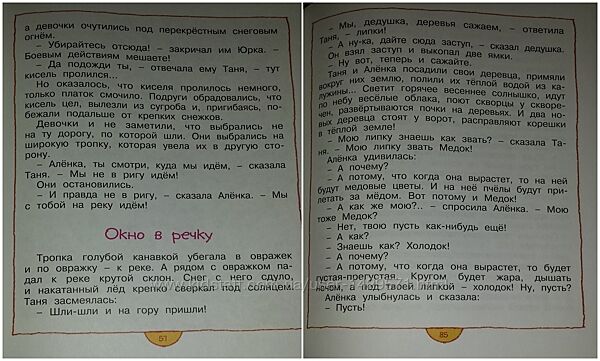 а девочки очутились под перекрёстным снеговым
огнём.
– Убирайтесь отсюда! – закричал им Юрка. –
Боевым действиям мешаете!
– Да подожди ты, – отвечала ему Таня, – тут
кисель пролился...
Но оказалось, что киселя пролилось немного,
только платок смочило. Подруги обрадовались, что
кисель цел, вылезли из сугроба и, пригибаясь, по-
бежали подальше от крепких снежков.
Девочки и не заметили, что выбрались не
на ту дорогу, по которой шли. Они выбрались на
широкую тропку, которая увела их в другую сто-
рону.
– Алёнка, ты смотри, куда мы идём, – сказала
Таня. – Мы не в ригу идём!
Они остановились.
– И правда не в ригу, – сказала Алёнка. – Мы
с тобой на реку идём!
Окно в речку
Тропка голубой канавкой убегала в овражек
и по овражку – к реке. А рядом с овражком па-
дал к реке крутой склон. Снег с него сдуло,
и накатанный лёд крепко сверкал под солнцем.
Таня засмеялась:
– Шли-шли и на гору пришли!
51
– Мы, дедушка, деревья сажаем, – ответила
Таня, – липки!
– А ну-ка, дайте сюда заступ, – сказал дедушка.
Он взял заступ и выкопал две ямки.
– Ну вот, теперь и сажайте.
Таня и Алёнка посадили свои деревца, примяли
вокруг них землю, полили их тёплой водой из ка-
лужины... Светит горячее весеннее солнышко, идут
по небу весёлые облака, поют скворцы у скворе-
чен, развёртываются почки на деревьях. И два но-
вых деревца стоят у ворот, расправляют корешки
в тёплой земле!
– Мою липку знаешь как звать? – сказала Та-
ня. – Мою липку звать Медок!
Алёнка удивилась:
– А почему?
– А потому, что когда она вырастет, то на ней
будут медовые цветы. И на неё пчёлы будут при-
летать за мёдом. Вот потому и Медок!
– А как же мою?.. – спросила Алёнка. – Мою
тоже Медок?
– Нет, твою пусть как-нибудь ещё!
– А как?
– Знаешь как? Холодок!
– А почему?
– А потому, что когда она вырастет, то будет
густая-прегустая. Кругом будет жара, дышать
нечем, а под твоей липкой – холодок! Ну, пусть?
Алёнка улыбнулась и сказала:
– Пусть!
85